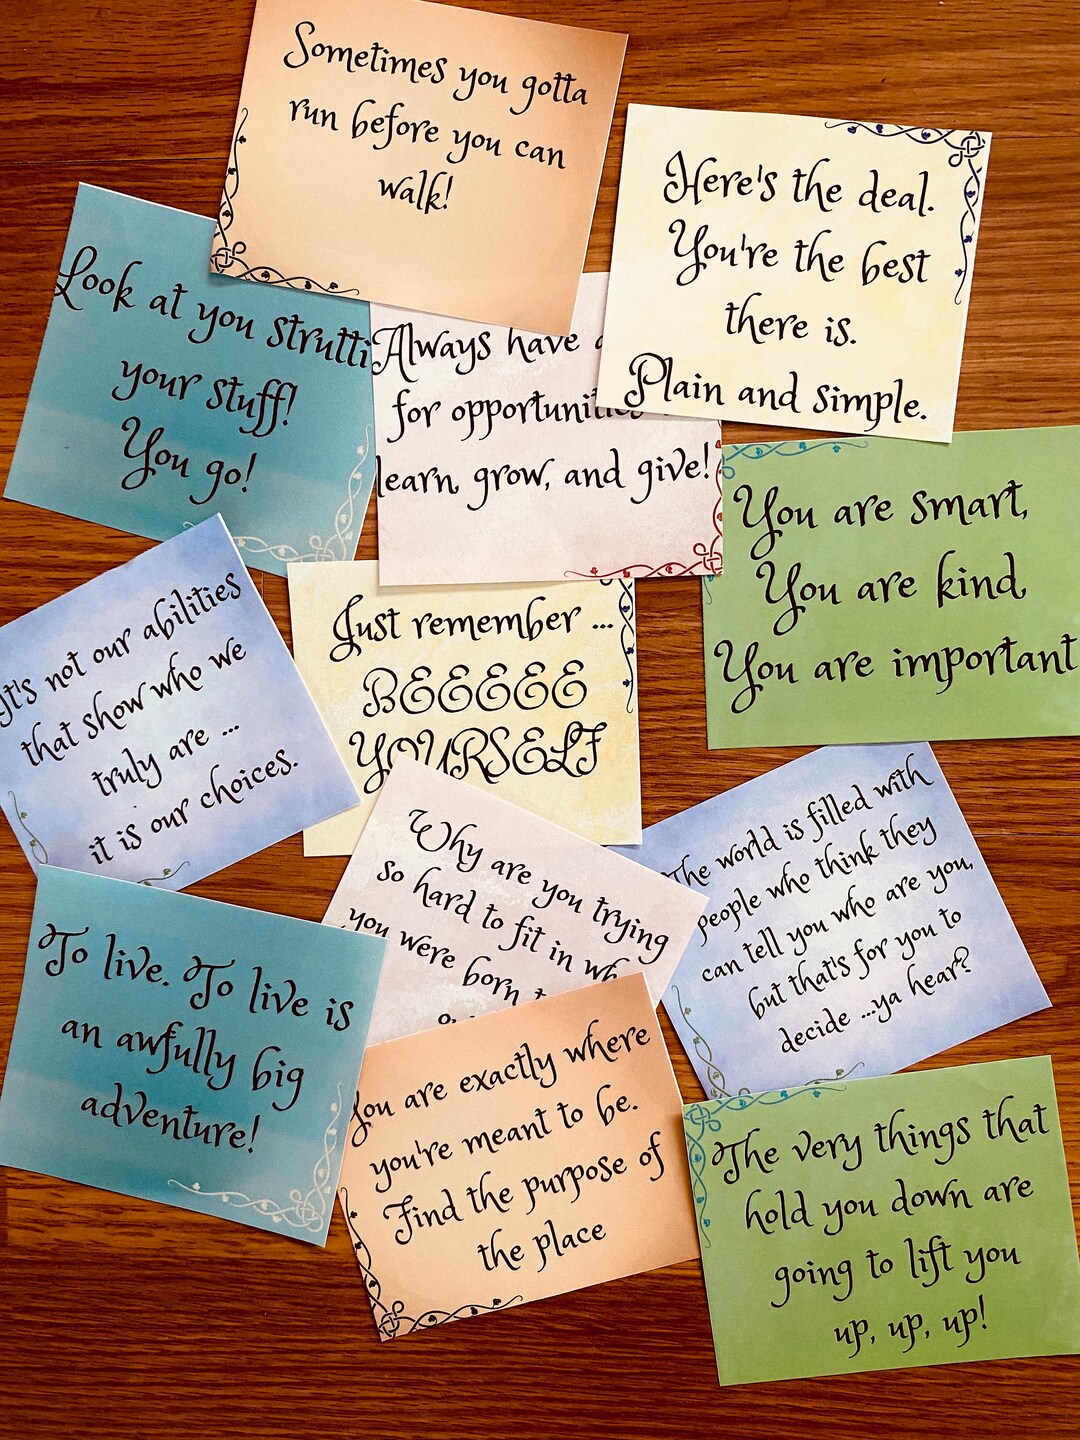 Sometimes you gotta
run before you can
walk!
Here's the deal.
You're the best
there is.
Plain and simple.
Look at you strutti
your stuff!
You go!
Always have
for opportuniti
learn, grow, and give!
You are smart,
You are kind,
You are important
It's not our abilities
that show who we
truly are ...
it is our choices.
Just remember ...
BEEEEE
YOURSELF
Why are you trying
so hard to fit in wh
you were born
The world is filled with
people who think they
can tell you who are you,
but that's for you to
decide ...ya hear?
To live. To live is
an awfully big
adventure!
You are exactly where
you're meant to be.
Find the purpose of
the place
The very things that
hold you down are
going to lift you
up, up, up!